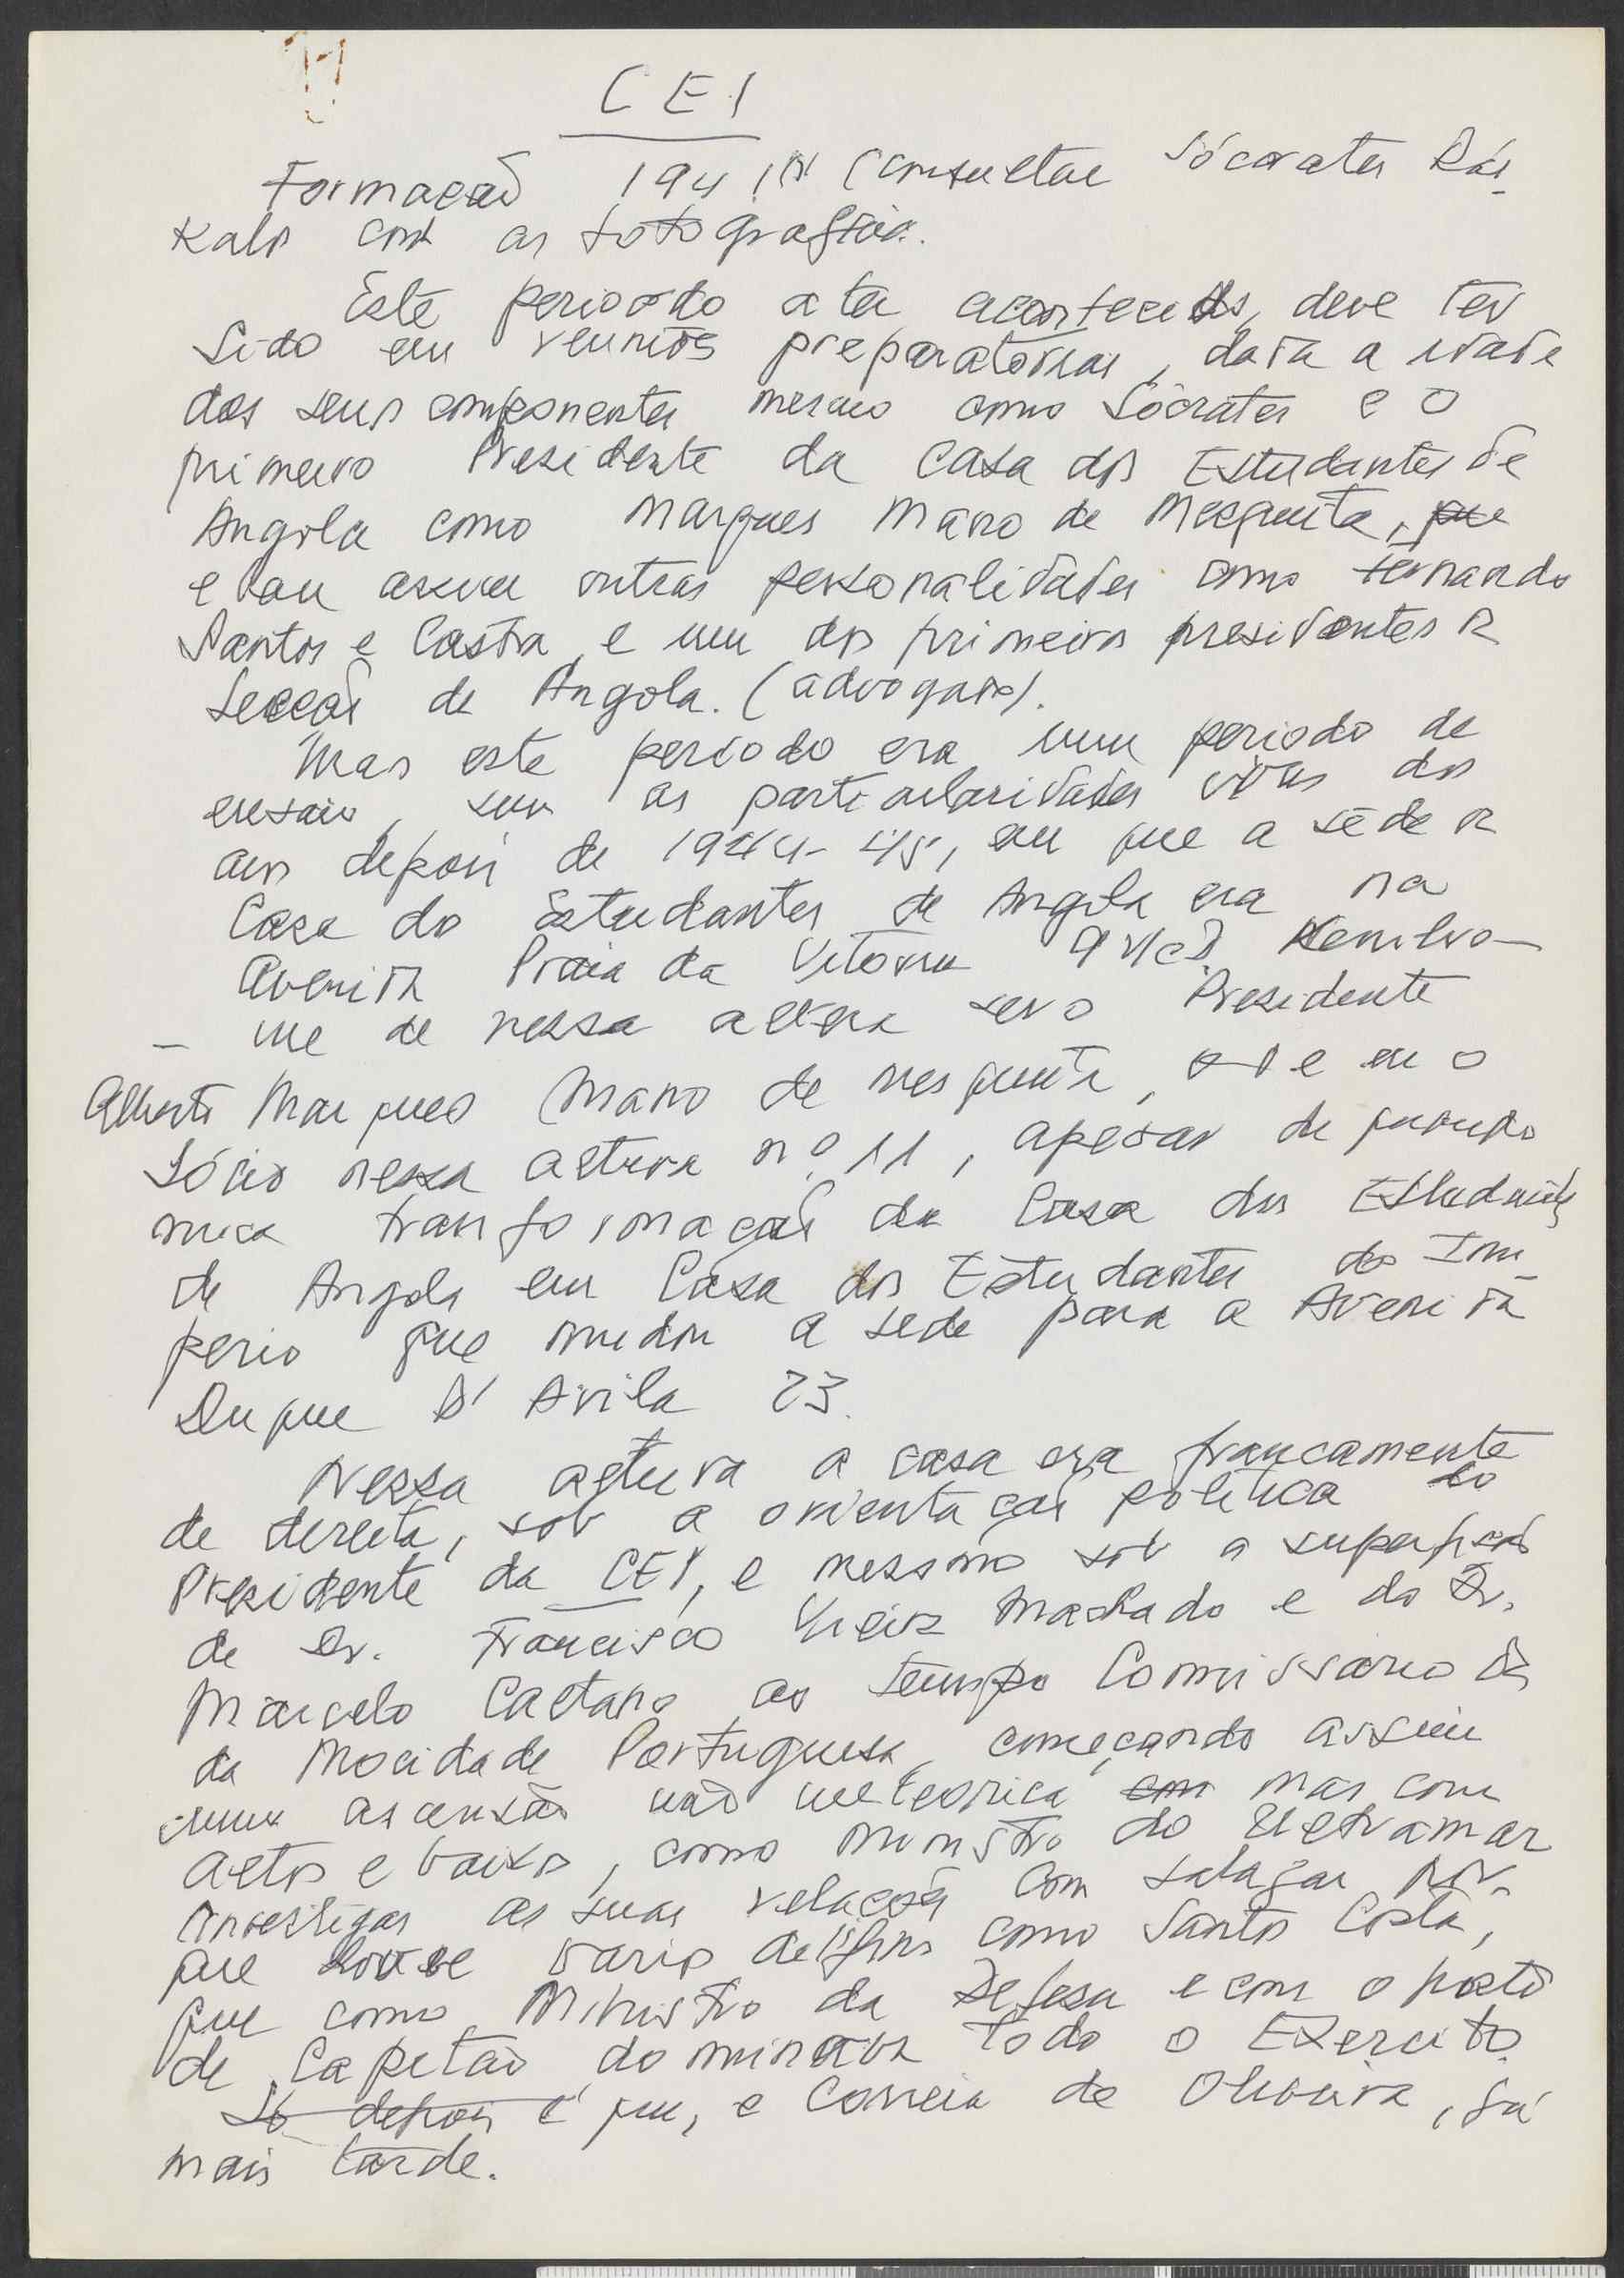 CEI
Formação 1941 (consultar Sócrates Dás-
kalos com as fotografias.
Este periodo a ter acontecido, deve ter
sido em reuniões preparatórias, dada a idade
dos seus componentes mesmo como Sócrates e o
primeiro Presidente da Casa dos Estudantes de
Angola como Marques Mano de Mesquita, que
e outras personalidades como Fernando
Santos e Castro, e um dos primeiros presidentes da
Secção de Angola. (advogado).
Mas este periodo era um periodo de
ensaio, sem as particularidades dos
anos depois de 1944-45, em que a sede da
Casa dos Estudantes de Angola era na
Avenida Praia da Vitoria 9 r/c D Lembro-
- me de nessa altura ser o Presidente
Alberto Marques Mano de Mesquita, e eu o
Sócio nessa altura nº 11, apesar de
transformação da Casa dos Estudantes
de Angola em Casa dos Estudantes do Im-
perio que mudou a sede para a Avenida
Duque D'Avila 23.
Nessa altura a casa era francamente
de direita, sob a orientação politica do
Presidente da CEI, e mesmo sob a
de Dr. Francisco Vieira Machado e do Dr.
Marcelo Caetano, ao tempo Comissário
da Mocidade Portuguesa, começando assim
uma ascensão não meteorica com mas com
altos e baixos, como ministro do Ultramar
investigar as suas relações com Salazar por-
que houve varios delfins como Santos Costa,
que como Ministro da Defesa e com o posto
de Capitão dominava todo o Exercito.
Só depois é que, e Correia de Oliveira, já
mais tarde.